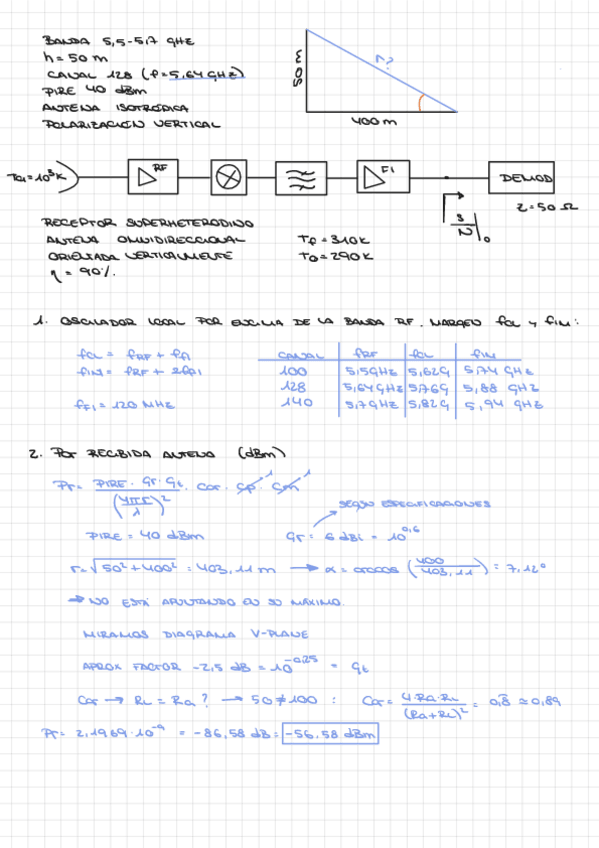 BANDA 5,5-5,7 GHz
h = 50 m
CANAL 128 (f = 5,64 GHz)
PIRE 40 dBm
ANTENA ISOTRÓPICA
POLARIZACIÓN VERTICAL
50 m
r?
400 m
Ta1=10³K
RF
FI
DEMOD
z=50 Ω
S/N|₀
RECEPTOR SUPERHETERODINO
ANTENA OMNIDIRECCIONAL
ORIENTADA VERTICALMENTE
η = 90%.
Tf = 310K
T0 = 290K
1. OSCILADOR LOCAL POR ENCIMA DE LA BANDA RF. MARGEN fOL y fIM:
fOL = fRF + fFI
fIM = fRF + 2fFI
fFI = 120 MHz
CANAL fRF fOL fIM
100 5,5GHz 5,62G 5,74 GHz
128 5,64GHz 5,76G 5,88 GHz
140 5,7GHz 5,82G 5,94 GHz
2. Pot RECIBIDA ANTENA (dBm)
Pr = PIRE · Gr · Gt / (4πr/λ)² · Car · Cp 1 · Cm 1
SEGÚN ESPECIFICACIONES
PIRE = 40 dBm Gr = 6 dBi = 10^0,6
r = √50² + 400² = 403,11 m → α = arccos (400/403,11) = 7,12º
→ NO ESTÁ APUNTANDO EN SU MÁXIMO.
MIRAMOS DIAGRAMA V-PLANE
APROX FACTOR -2,5 dB = 10^-0,25 = Gt
Car → RL = Ra? → 50 ≠ 100 : Car = 4·Ra·RL/(Ra+RL)² = 0,8 ≃ 0,89
Pr = 2,1969·10^-9 = -86,58 dB = -56,58 dBm